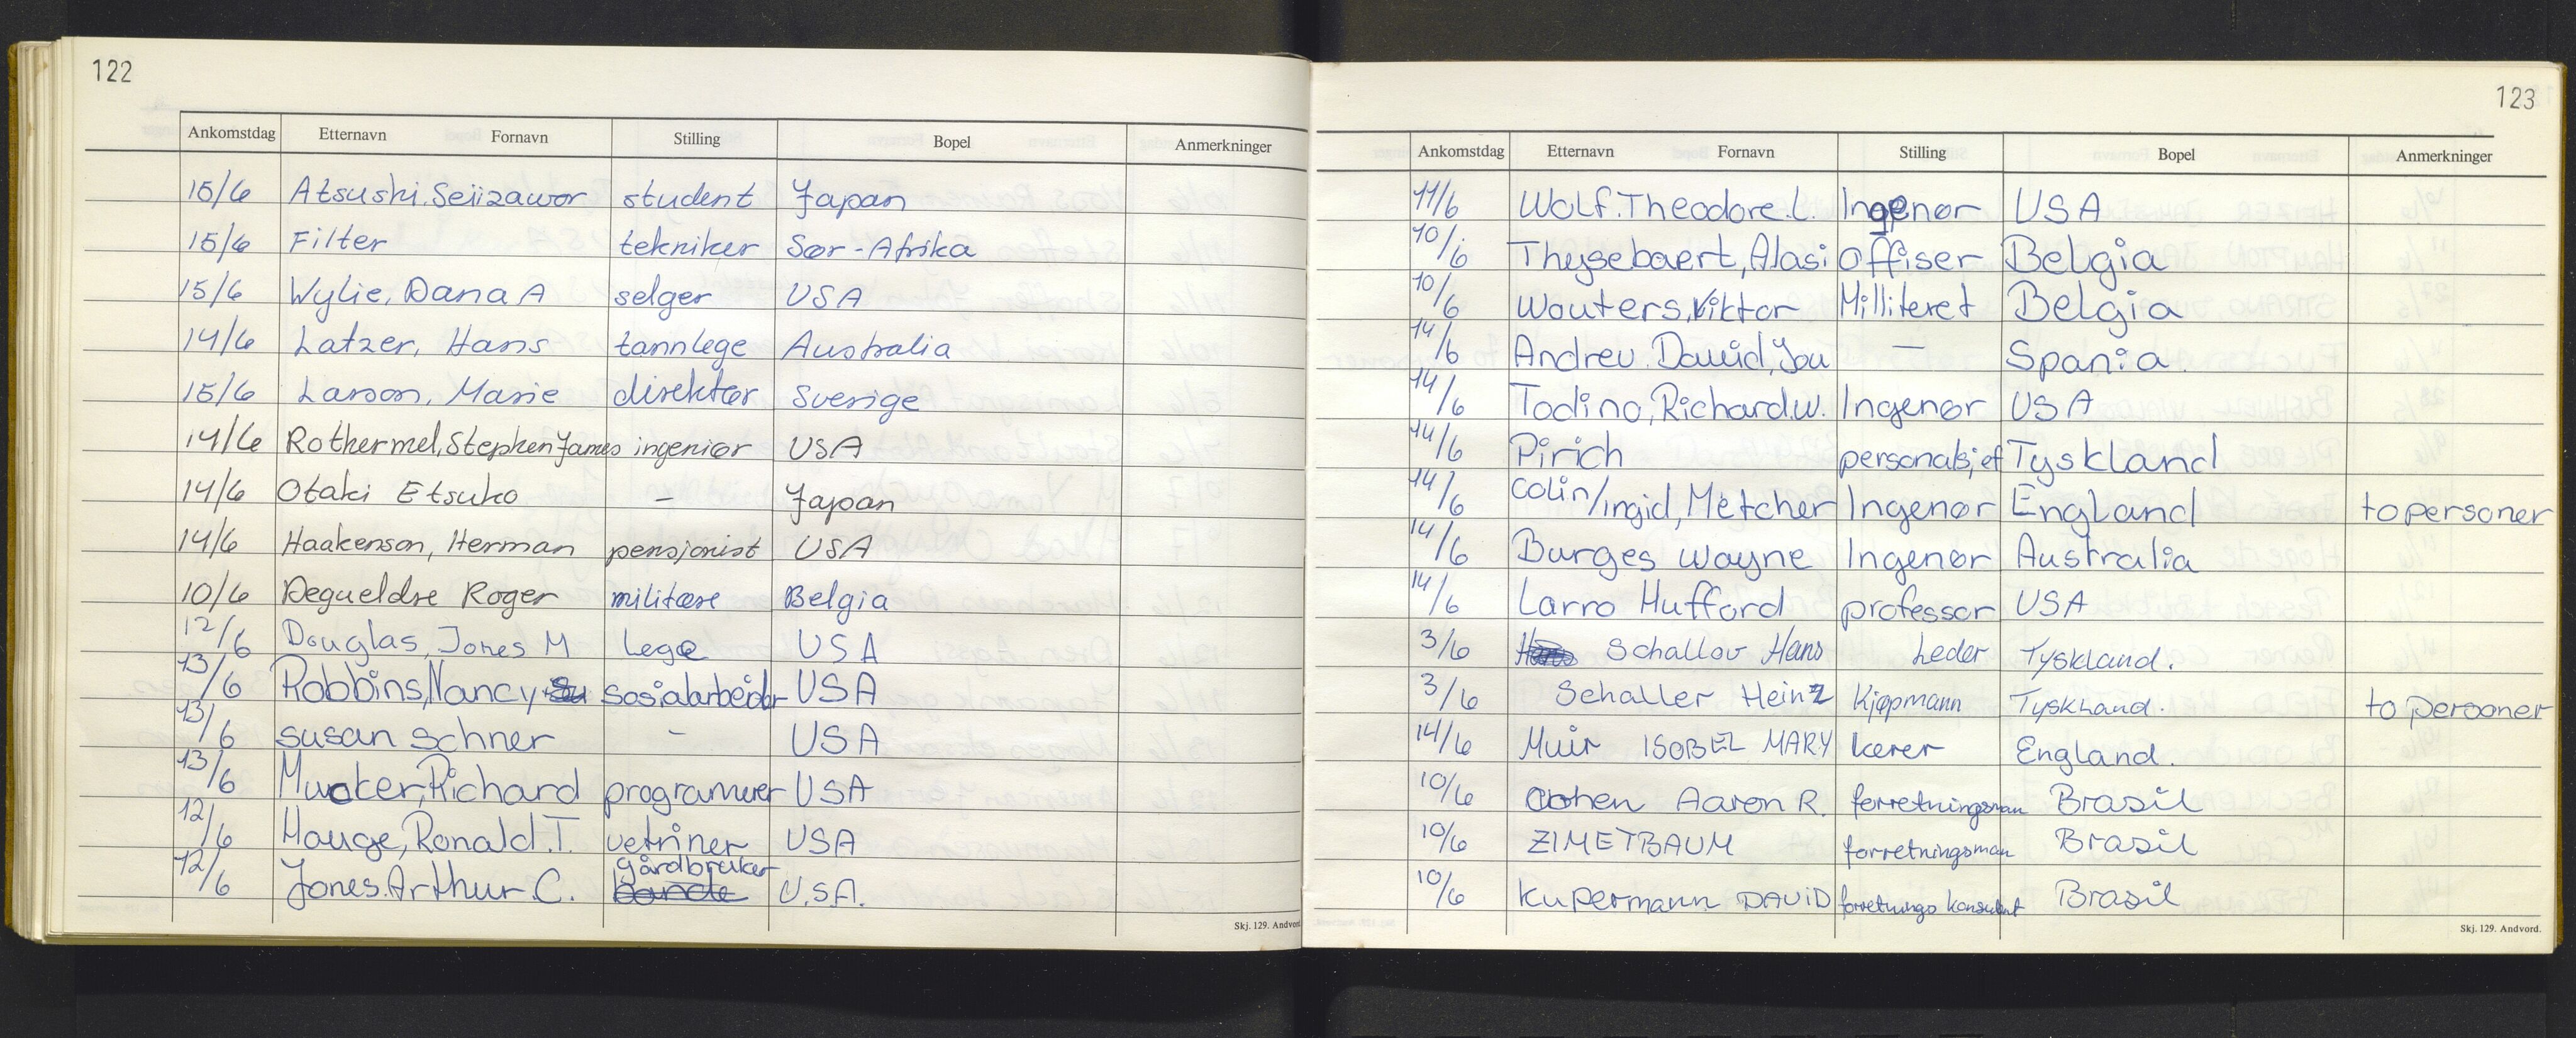 122
Ankomstdag Etternavn Fornavn Stilling Bopel Anmerkninger
15/6 Atsushi.Seiizawor student Japan
15/6 Filter tekniker Sør-Afrika
15/6 Wylie, Dana A selger USA
14/6 Latzer, Hans tannlege Australia
15/6 Larson, Marie direktør Sverige
14/6 Rothermel, Stephen James ingeniør USA
14/6 Otaki Etsuko - Japan
14/6 Haakenson, Herman pensjonist USA
10/6 Degueldre Roger militære Belgia
12/6 Douglas, Jones M Lege USA
13/6 Robbins, Nancy sosialarbeider USA
13/6 susan schner - USA
13/6 Richard programerer USA
12/6 Hauge, Ronald.T. vetriner USA
12/6 Jones.Arthur.C. gårdbruker U.S.A.
Skj. 129. Andvord
123
Ankomstdag Etternavn Fornavn Stilling Bopel Anmerkninger
11/6 Wolf.Theodore.L. Ingenør USA
10/6 Thysebaert, Alasi offiser Belgia
10/6 Wouters, Viktor Milliteret Belgia
14/6 Andreu. David, You - Spania.
14/6 Todino, Richard.W. Ingenør USA
14/6 Pirich personalsjef Tyskland
14/6 colin/ingid, Metcher Ingenør England to personer
14/6 Burges wayne Ingenør Australia
14/6 Larro Hufford professor USA
3/6 Schallov Hans Leder Tyskland.
3/6 Schaller Heinz Kjøpmann Tyskland. to personer
14/6 Muir ISOBEL MARY lærer England.
10/6 Cohen Aaron R. forretningsman Brasil
10/6 ZIMETBAUM forretningsman Brasil
10/6 Kupermann DAViD forretnings konsulent Brasil
Skj. 129. Andvord.